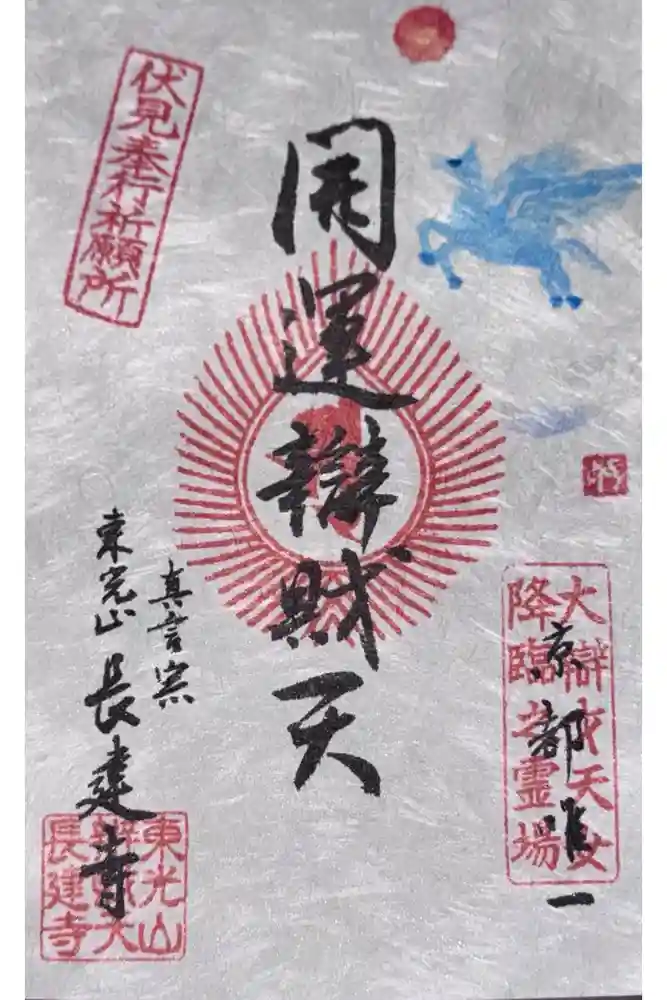 大辯才天女
降臨之霊場
京都唯一
開運辯財天
伏見奉行祈願所
真言宗
東光山
長建寺
東光山
辯財天
長建寺